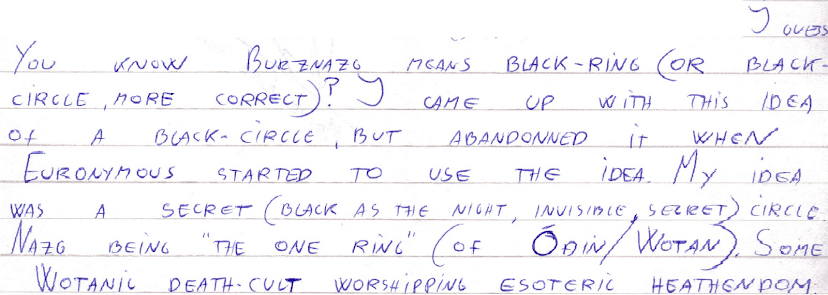 I guess
You know Burznazg means black-ring (or black-
circle, more correct)? I came up with this idea
of a black-circle, but abandonned it when
Euronymous started to use the idea. My idea
was a secret (black as the night, invisible, secret) circle.
Nazg being "the one ring" (of Odin/Wotan). Some
Wotanic death-cult worshipping esoteric heathendom.